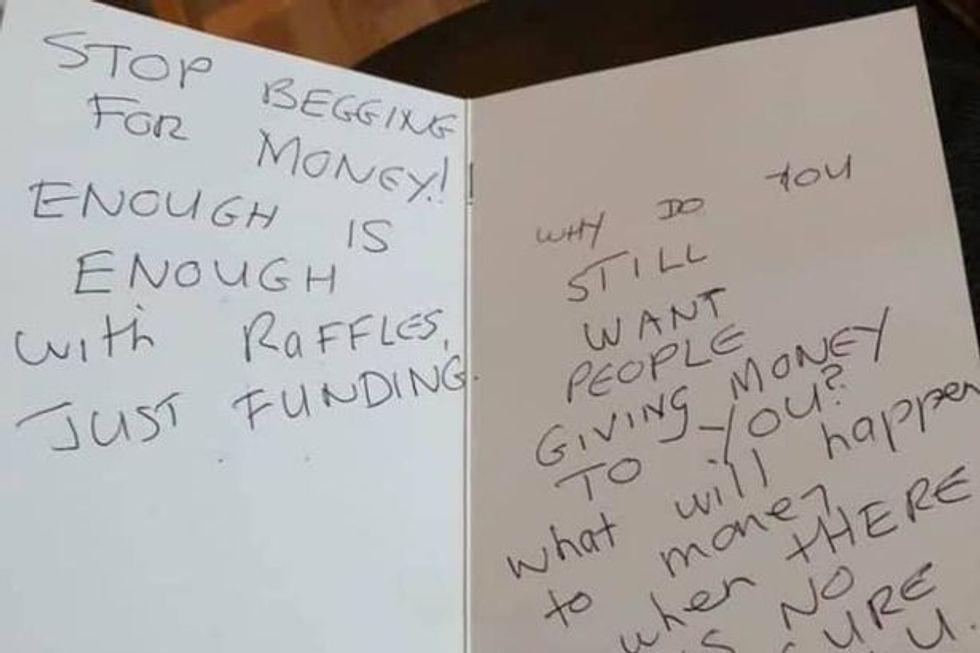 STOP BEGGING
FOR MONEY!!
ENOUGH IS
ENOUGH
with RaFFLES,
JUST FUNDING.
WHY DO YOU
STILL
WANT
PEOPLE
GIVING MONEY
TO YOU?
what will happen
to money
when tHERE
NO
CURE
U.